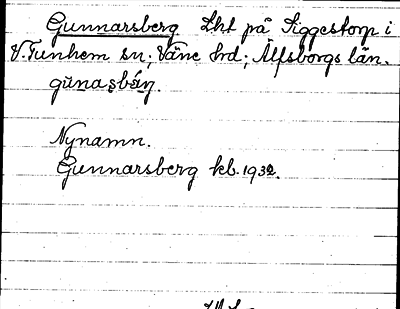 Gunnarsberg Lht på Siggestorp i
V. Tunhem sn; Väne hd; Älfsborgs län.
gùnaṣbárj.
Nynamn.
Gunnarsberg kb. 1932.